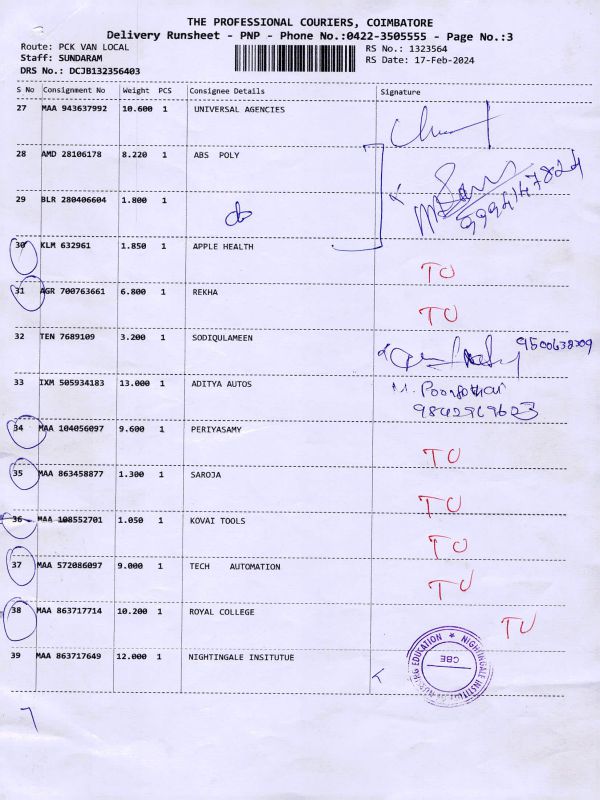 THE PROFESSIONAL COURIERS, COIMBATORE
Delivery Runsheet - PNP - Phone No.:0422-3505555 - Page No.:3
Route: PCK VAN LOCAL
RS No.: 1323564
Staff: SUNDARAM
RS Date: 17-Feb-2024
DRS No.: DCJB132356403
S No Consignment No Weight PCS Consignee Details Signature
27 MAA 943637992 10.600 1 UNIVERSAL AGENCIES
28 AMD 28106178 8.220 1 ABS POLY
9994147824
29 BLR 280406604 1.800 1
30 KLM 632961 1.850 1 APPLE HEALTH
TO
31 AGR 700763661 6.800 1 REKHA
TO
32 TEN 7689109 3.200 1 SODIQULAMEEN
33 IXM 505934183 13.000 1 ADITYA AUTOS
34 MAA 104056097 9.600 1 PERIYASAMY
TU
35 MAA 863458877 1.300 1 SAROJA
TU
36 MAA 108552701 1.050 1 KOVAI TOOLS
TU
37 MAA 572086097 9.000 1 TECH AUTOMATION
TU
38 MAA 863717714 10.200 1 ROYAL COLLEGE
TU
39 MAA 863717649 12.000 1 NIGHTINGALE INSITUTUE
NIGHTINGALE INSTITUTE EDUCATION
CBE